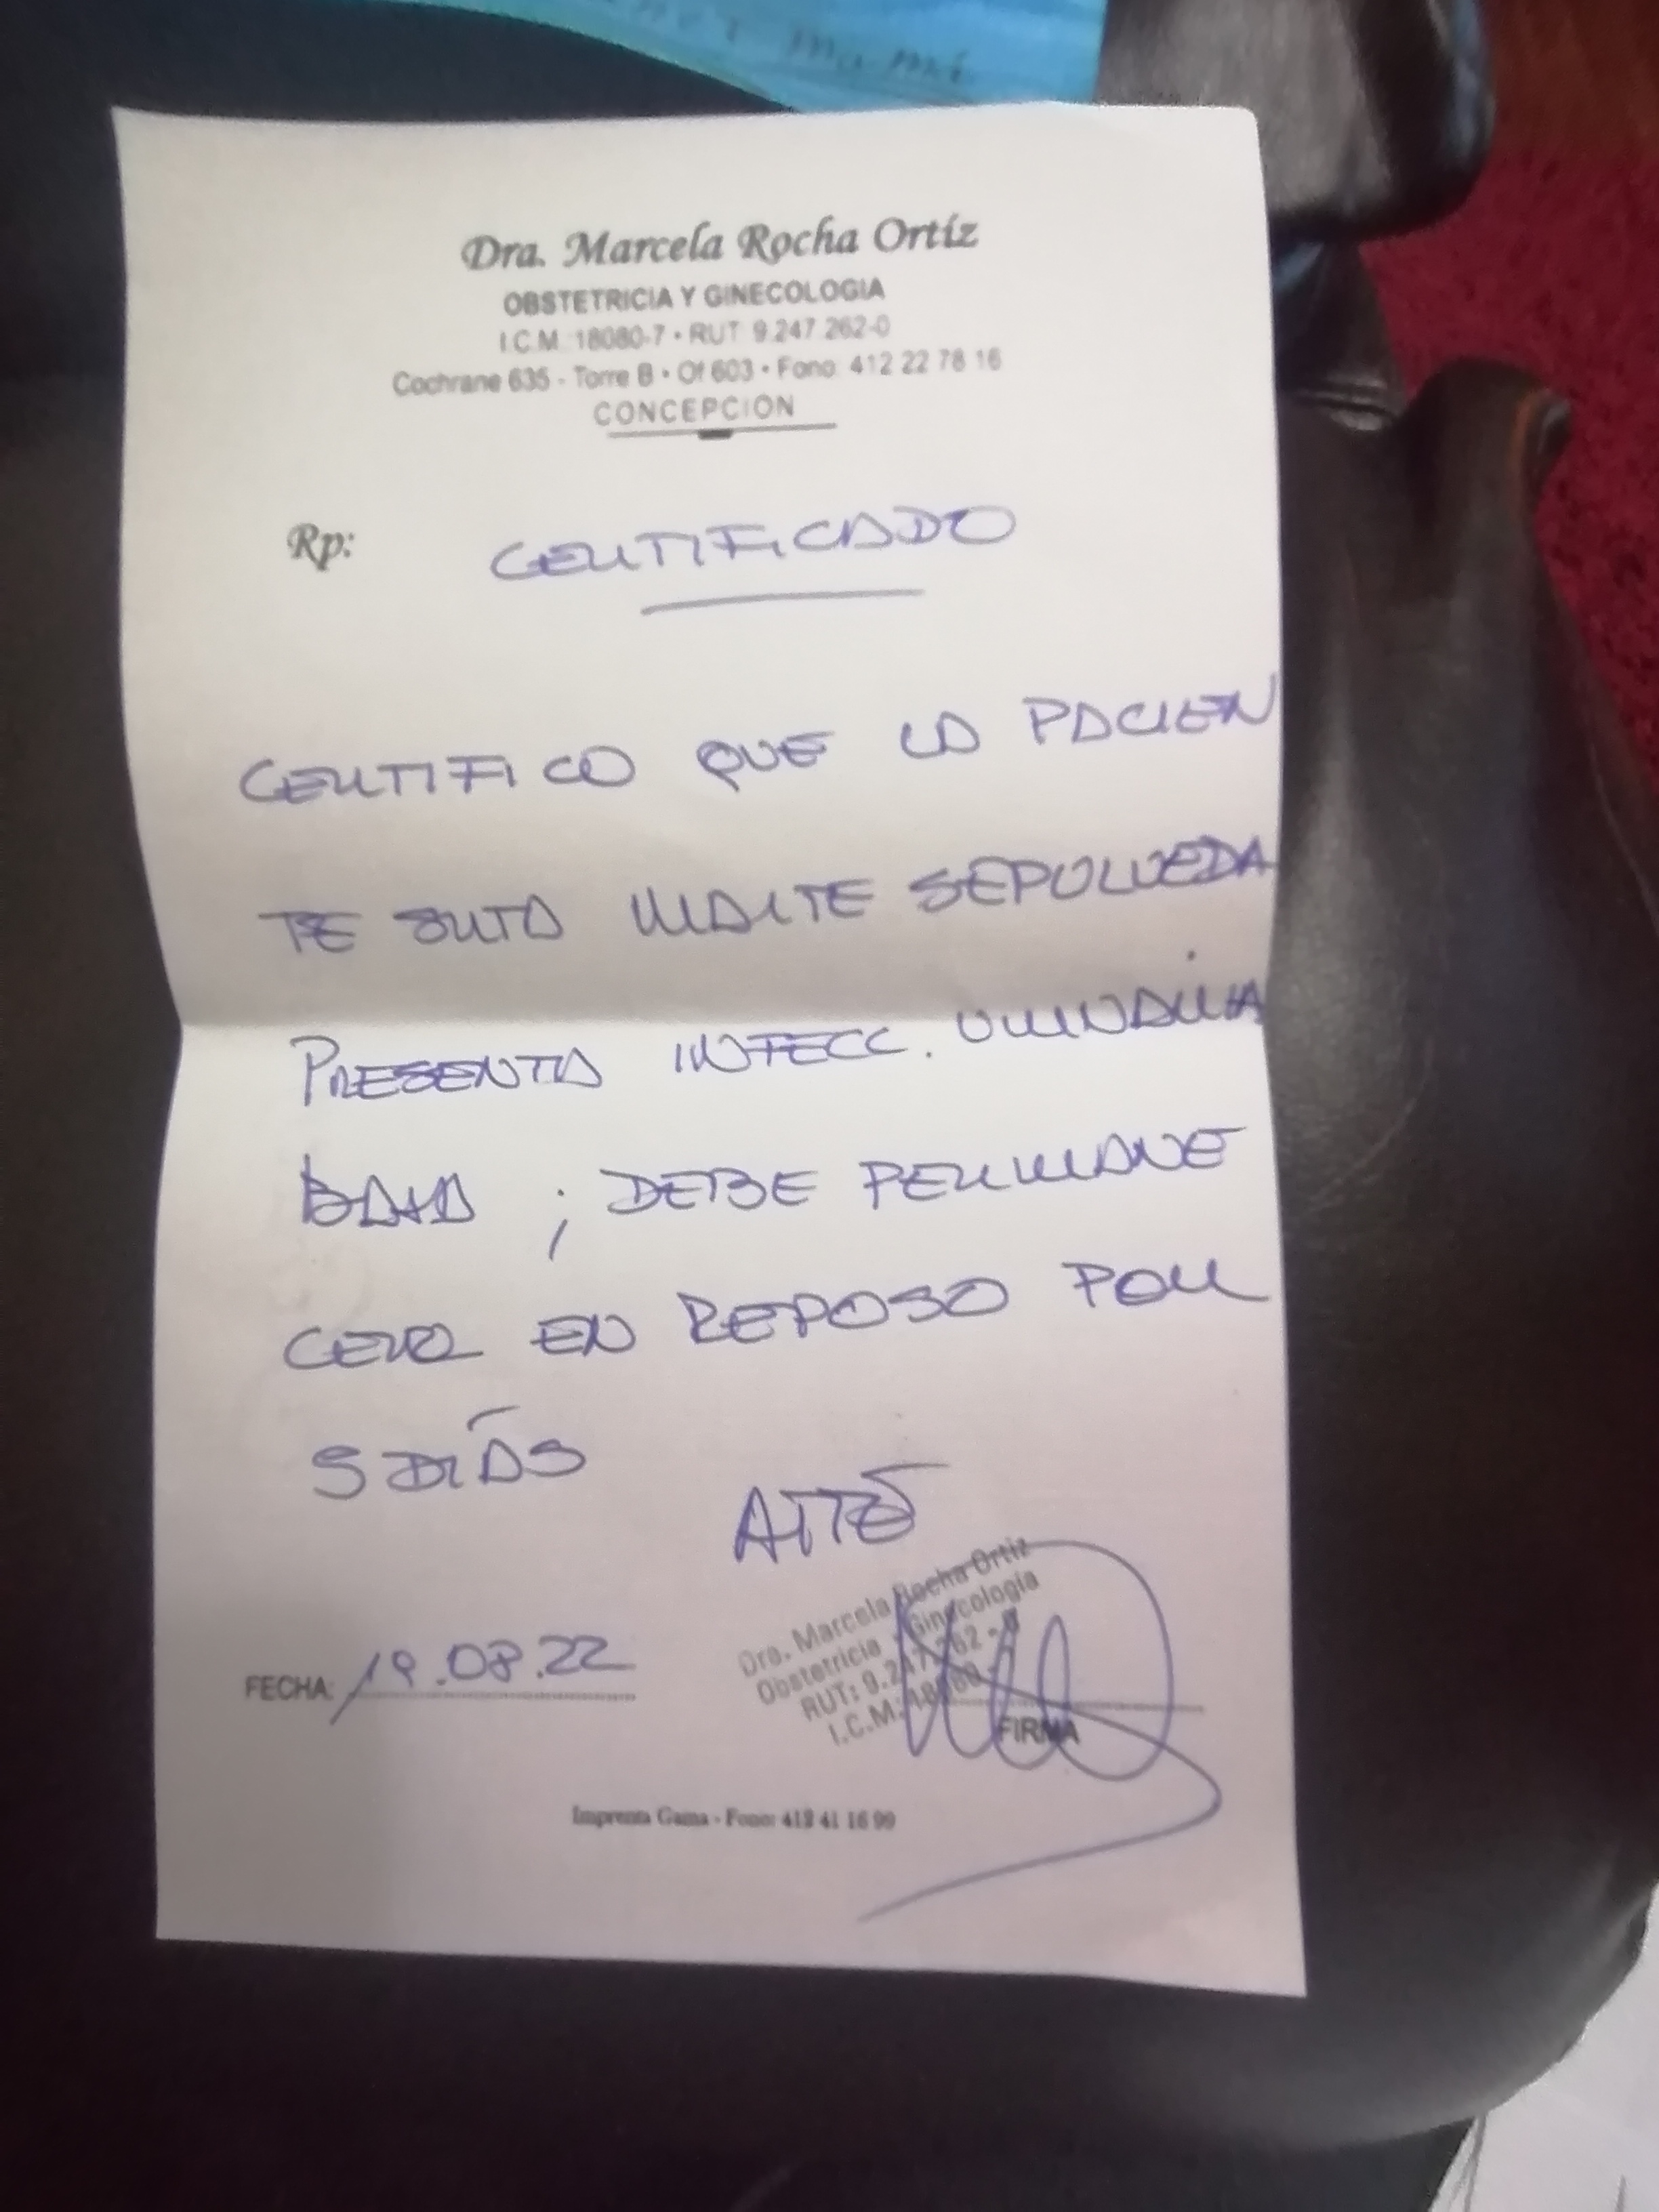 mami
Dra. Marcela Rocha Ortíz
OBSTETRICIA Y GINECOLOGIA
I.C.M. 18080-7 • RUT 9.247.262-0
Cochrane 635 - Torre B • Of 603 • Fono: 412 22 78 16
CONCEPCION
Rp: CERTIFICADO
CERTIFICO QUE LA PACIEN
TE SRTA MAITE SEPULVEDA
PRESENTA INFECC. URINARIA
BAJA ; DEBE PERMANE
CER EN REPOSO POR
5 DÍAS
ATTE
Dra. Marcela Rocha Ortiz
Obstetricia - Ginecología
RUT: 9.247.262 - 0
I.C.M. 18080
FECHA: 19.08.22
FIRMA
Imprenta Gama - Fono: 412 41 16 99